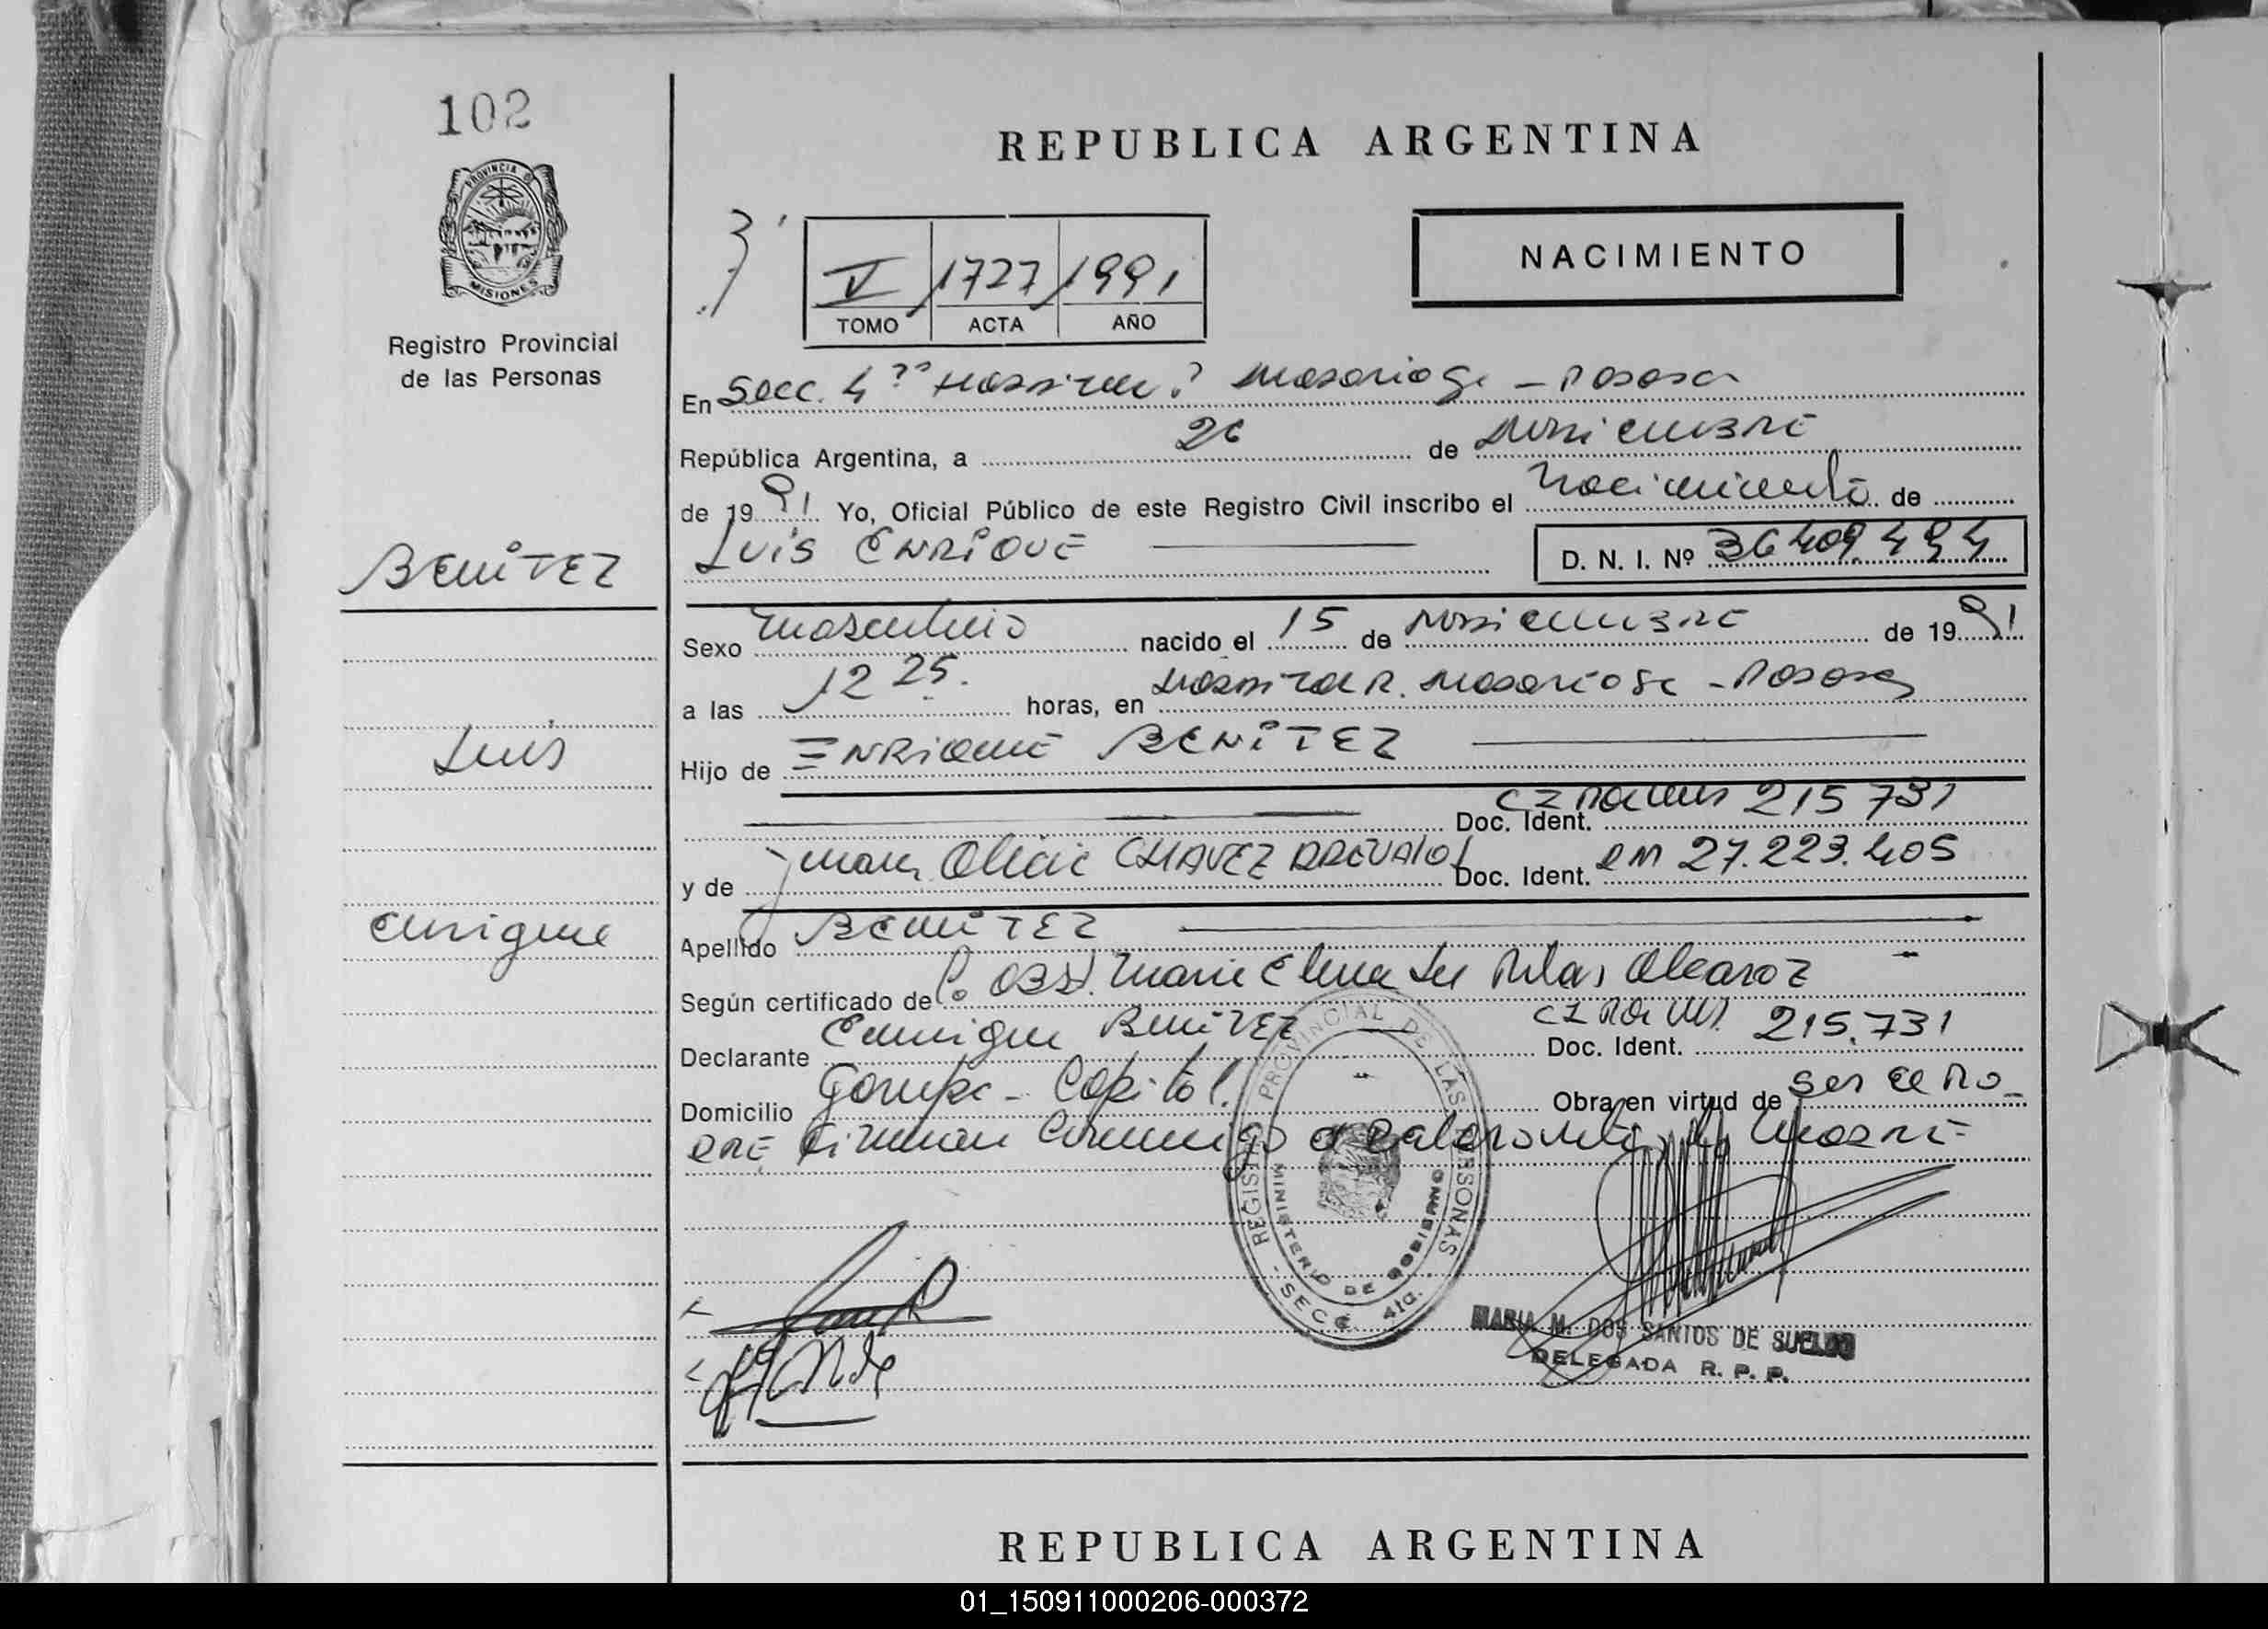 102
PROVINCIA D
MISIONES
Registro Provincial
de las Personas
REPUBLICA ARGENTINA
V 1727 1991
TOMO ACTA AÑO
NACIMIENTO
En Secc. 4 Posadas
República Argentina, a 26 de
de 1991 Yo, Oficial Público de este Registro Civil inscribo el Nacimiento de
BENITEZ
LUIS ENRIQUE
D. N. I. Nº 36.409.494
Sexo masculino nacido el 15 de de 1991
a las 12 25. horas, en Posadas
Luis
Hijo de ENRIQUE BENITEZ
Doc. Ident. 215731
y de Alicia CHAVEZ AREVALO Doc. Ident. 27.223.405
Enrique
Apellido BENITEZ
Según certificado de Obst. Maria Elena
Declarante Enrique Benitez Doc. Ident. 215.731
Domicilio Garupa - Capital. Obra en virtud de ser el Pa-
DRE Firman conmigo
REGISTRO PROVINCIAL DE LAS PERSONAS
MINISTERIO DE GOBIERNO
- SECC. 4ta. -
MARIA M. DOS SANTOS DE SUELDO
DELEGADA R. P. P.
REPUBLICA ARGENTINA
01_150911000206-000372